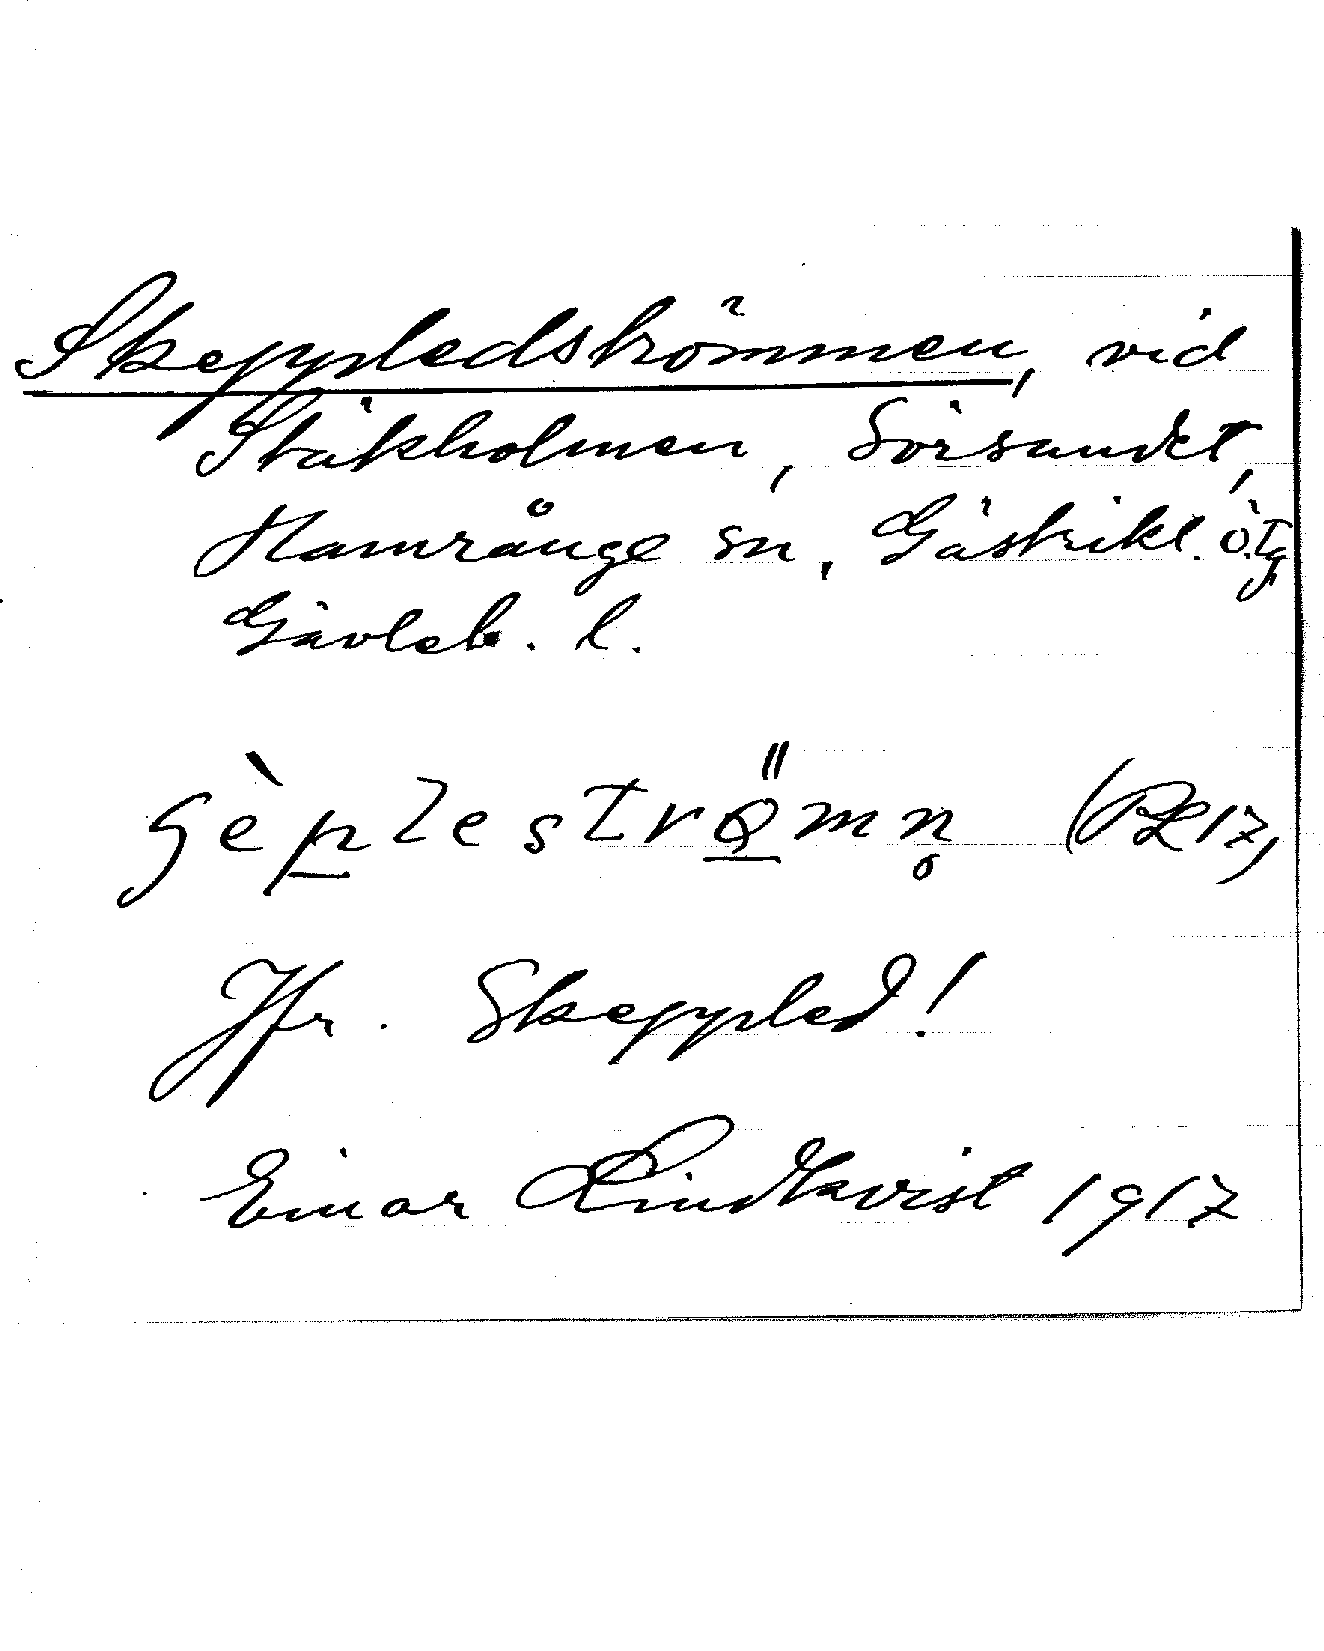 Skeppledströmmen, vid
Stäkholmen, Sörsundet,
Hamrånge sn, Gästrikl. ö.tg
Gävleb. l.
Jfr. Skeppled!
Einar Lindkvist 1917